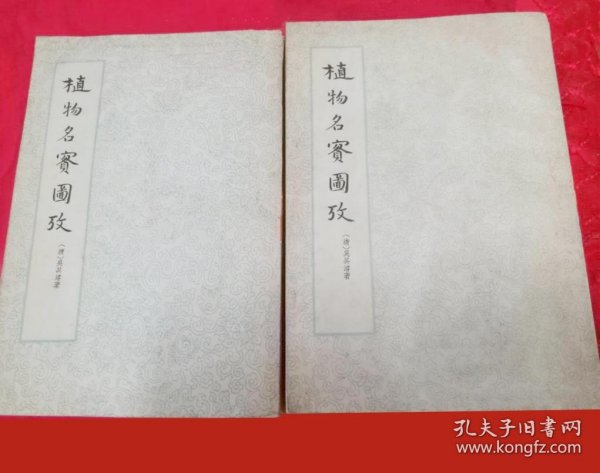 植物名實圖攷
(清)吳其濬著
植物名實圖攷
(清)吳其濬著
孔夫子旧书网
www.kongfz.com